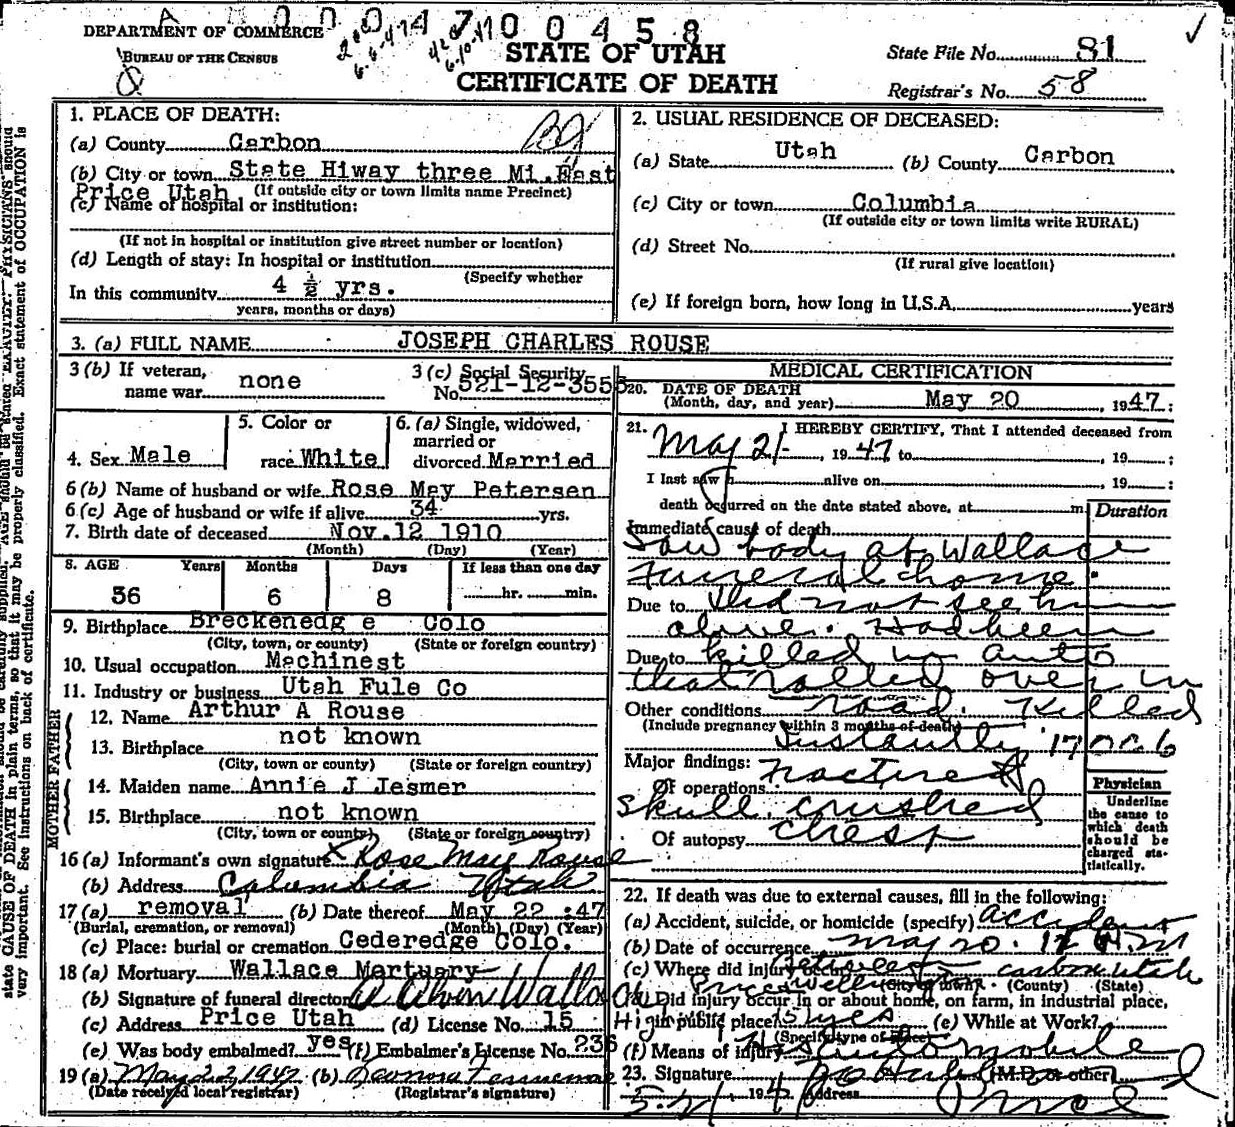 DEPARTMENT OF COMMERCE
BUREAU OF THE CENSUS
00458
STATE OF UTAH
CERTIFICATE OF DEATH
State File No. 81
Registrar's No. 58
1. PLACE OF DEATH:
(a) County Carbon
(b) City or town State Hiway three Mi. East
Price Utah (If outside city or town limits name Precinct)
(c) Name of hospital or institution:
(If not in hospital or institution give street number or location)
(d) Length of stay: In hospital or institution
(Specify whether
In this community 4 ½ yrs.
years, months or days)
2. USUAL RESIDENCE OF DECEASED:
(a) State Utah (b) County Carbon
(c) City or town Columbia
(If outside city or town limits write RURAL)
(d) Street No.
(If rural give location)
(e) If foreign born, how long in U.S.A. years
3. (a) FULL NAME JOSEPH CHARLES ROUSE
3 (b) If veteran, name war none
3 (c) Social Security No. 521-12-3555
4. Sex Male
5. Color or race White
6. (a) Single, widowed, married or divorced Married
6 (b) Name of husband or wife Rose May Petersen
6 (c) Age of husband or wife if alive 34 yrs.
7. Birth date of deceased Nov. 12 1910
(Month) (Day) (Year)
8. AGE Years Months Days If less than one day
36 6 8 hr. min.
9. Birthplace Breckenedg e Colo
(City, town, or county) (State or foreign country)
10. Usual occupation Mechinest
11. Industry or business Utah Fule Co
FATHER
12. Name Arthur A Rouse
13. Birthplace not known
(City, town or county) (State or foreign country)
MOTHER
14. Maiden name Annie J Jesmer
15. Birthplace not known
(City, town or county) (State or foreign country)
16 (a) Informant's own signature x Rose May Rouse
(b) Address Columbia Utah
17 (a) removal (b) Date thereof May 22 :47
(Burial, cremation, or removal) (Month) (Day) (Year)
(c) Place: burial or cremation Cederedge Colo.
18 (a) Mortuary Wallace Mortuary
(b) Signature of funeral director
(c) Address Price Utah (d) License No. 15
(e) Was body embalmed? yes (f) Embalmer's License No. 236
19 (a) May 22, 1947 (b)
(Date received local registrar) (Registrar's signature)
MEDICAL CERTIFICATION
20. DATE OF DEATH
(Month, day, and year) May 20, 1947:
21. I HEREBY CERTIFY, That I attended deceased from
May 21-, 1947 to , 19 :
I last saw h alive on , 19 :
death occurred on the date stated above, at m
Duration
Immediate cause of death
Saw body at Wallace
funeral home.
Due to Did not see him
alive. Had been
Due to killed in auto
that rolled over in
Other conditions road. Killed
(Include pregnancy within 3 months of death)
Instantly
Major findings: Fractured
Of operations
skull. crushed
Of autopsy chest
Physician
Underline
the cause to
which death
should be
charged sta-
tistically.
22. If death was due to external causes, fill in the following:
(a) Accident, suicide, or homicide (specify) accident
(b) Date of occurrence May 20.
(c) Where did injury occur? Between carbon utah
(City or town) (County) (State)
(d) Did injury occur in or about home, on farm, in industrial place,
in public place? yes (e) While at Work?
(Specify type of place)
(f) Means of injury automobile
23. Signature (M.D. or other)
5-21 1947 Address Price
state CAUSE OF DEATH in plain terms, so that it may be properly classified. Exact statement of OCCUPATION is
very important. See instructions on back of certificate.